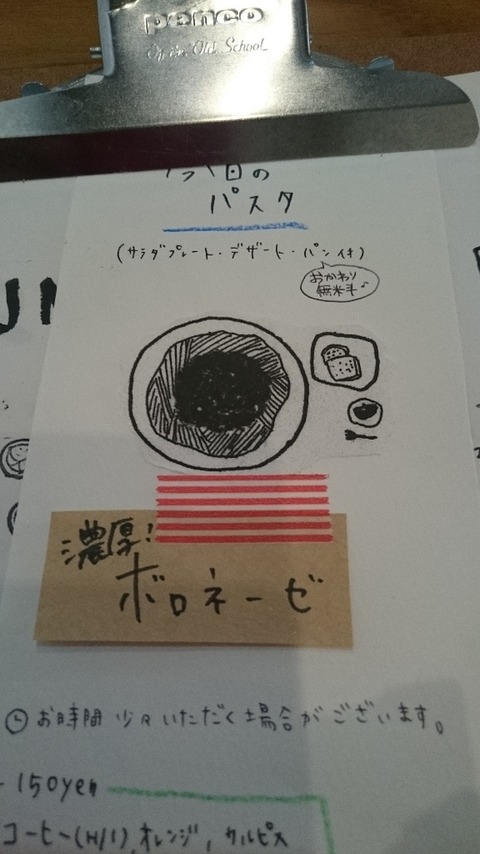 penco
Old School
今日の
パスタ
(サラダプレート・デザート・パン付)
おかわり
無料♪
濃厚!
ボロネーゼ
お時間少々いただく場合がございます。
150yen
コーヒー(H/I),オレンジ,カルピス